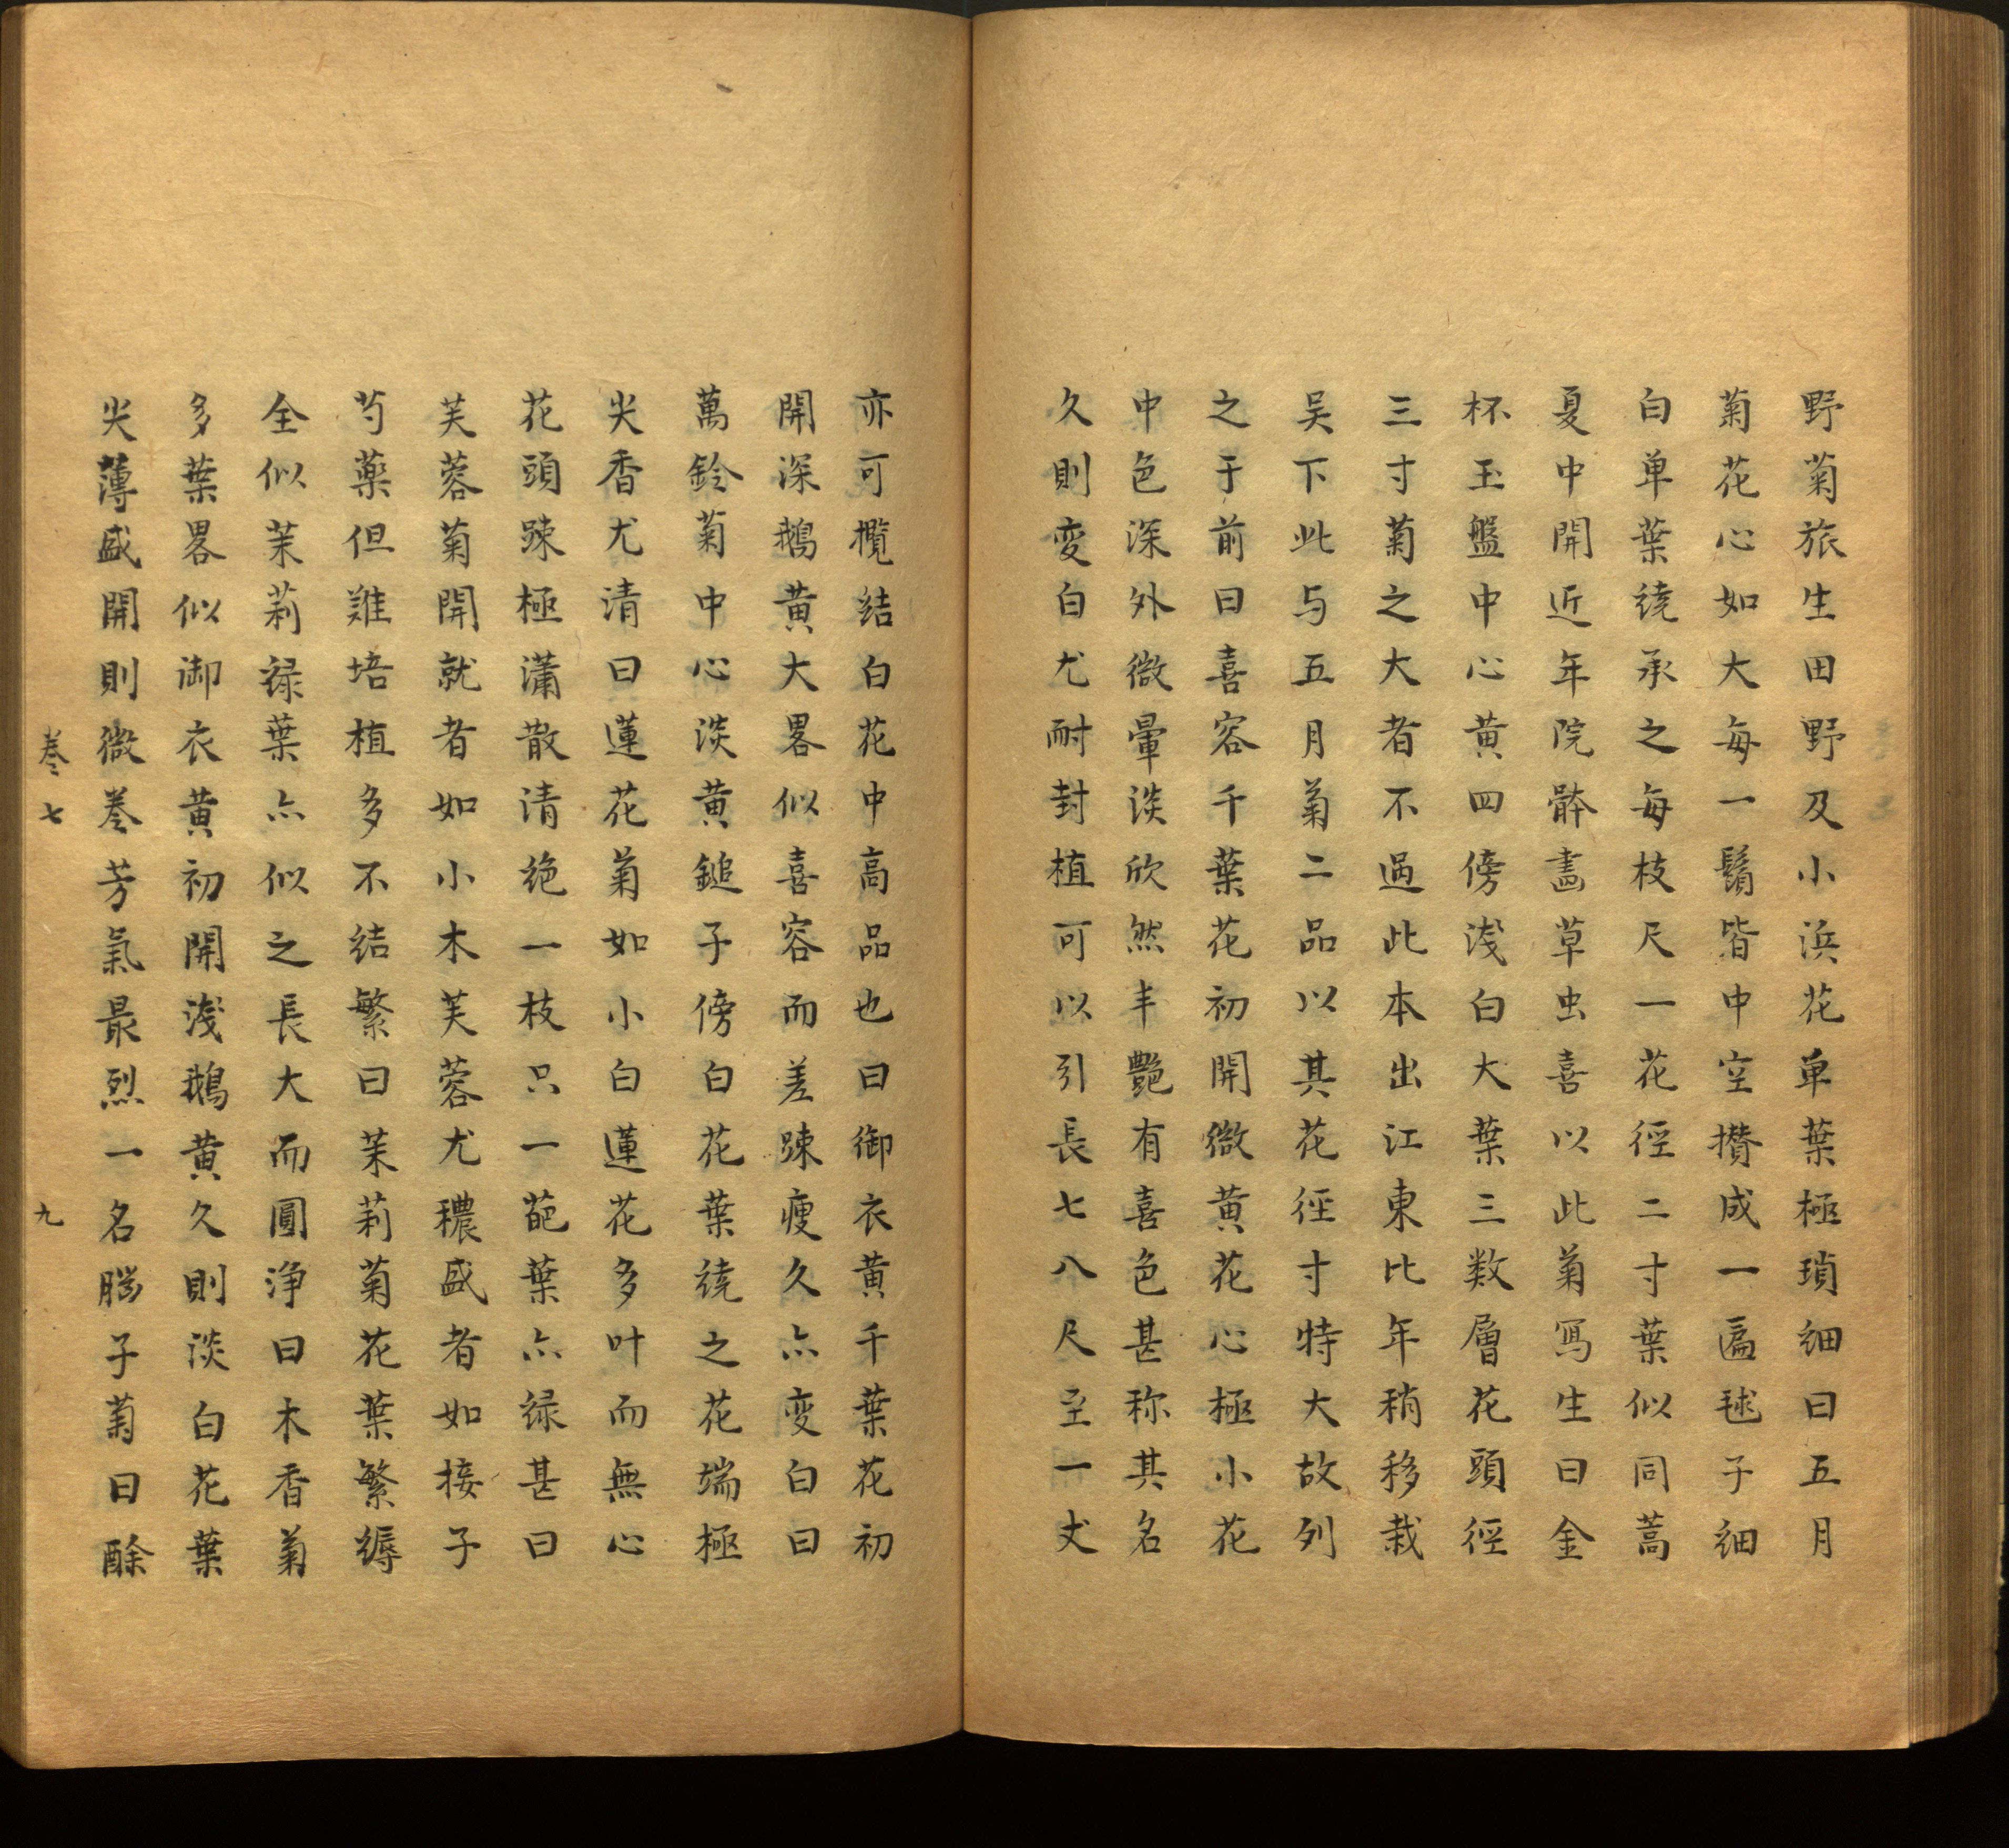 野菊旅生田野及小浜花单葉極瑣細曰五月
菊花心如大每一鬚皆中空攅成一匾毬子細
白单葉繞承之每枝尺一花径二寸葉似同蒿
夏中開近年院骵畫草虫喜以此菊冩生曰金
杯玉盤中心黄四傍浅白大葉三数層花頭徑
三寸菊之大者不過此本出江東比年稍移栽
吴下此与五月菊二品以其花徑寸特大故列
之于前曰喜容千葉花初開微黄花心極小花
中色深外微暈淡欣然丰艷有喜色甚称其名
久則变白尤耐封植可以引長七八尺至一丈
亦可欖結白花中高品也曰御衣黄千葉花初
開深鵝黄大畧似喜容而差踈瘦久亦变白曰
萬鈴菊中心淡黄鎚子傍白花葉繞之花端極
尖香尤清曰蓮花菊如小白蓮花多叶而無心
花頭踈極瀟散清绝一枝只一葩葉亦緑甚曰
芙蓉菊開就者如小木芙蓉尤穠盛者如接子
芍藥但難培植多不結繁曰茉莉菊花葉繁縟
全似茉莉緑葉亦似之長大而圓浄曰木香菊
多葉畧似御衣黄初開浅鵝黄久則淡白花葉
尖薄盛開則微巻芳氣最烈一名腦子菊曰酴
巻七
九